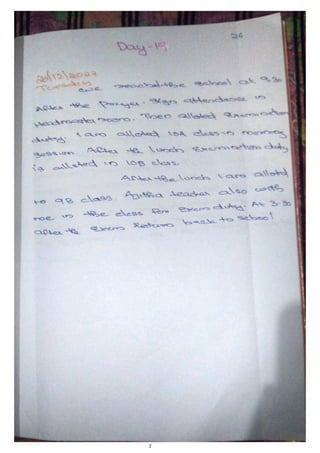 26
Day-19
20/12/2022
Tuesday
we reached the school at 9.30
After the prayer. Sign attendance in
Headmaster room. Then alloted Examination
duty. I am alloted 10A class in morning
session. After the lunch Examination duty
is alloted in 10B class.
After the lunch I am alloted
to 9B class. Ajitha teacher also with
me in the class for Exam duty. At 3.30
after the Exam Return back to school
2